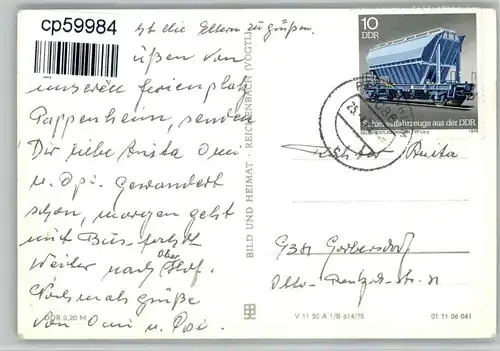 cp59984
ist die Eltern zu grüßen.
üßen von
unseren Ferienplatz
Pappenheim, senden
Dir liebe Anita Omi
u. Opi. Gewandert
schon, morgen geht
mit Bus
weiter nach Ober Hof.
Nochmals Grüße
von Omi u. Opi.
DDR 0,20 M
BILD UND HEIMAT · REICHENBACH (VOGTL)
10
DDR
Schienenfahrzeuge aus der DDR
1979
Anita
9381 Gorbersdorf
Otto- -Str. 31
V 11 50 A 1/B 614/78
01 11 06 041